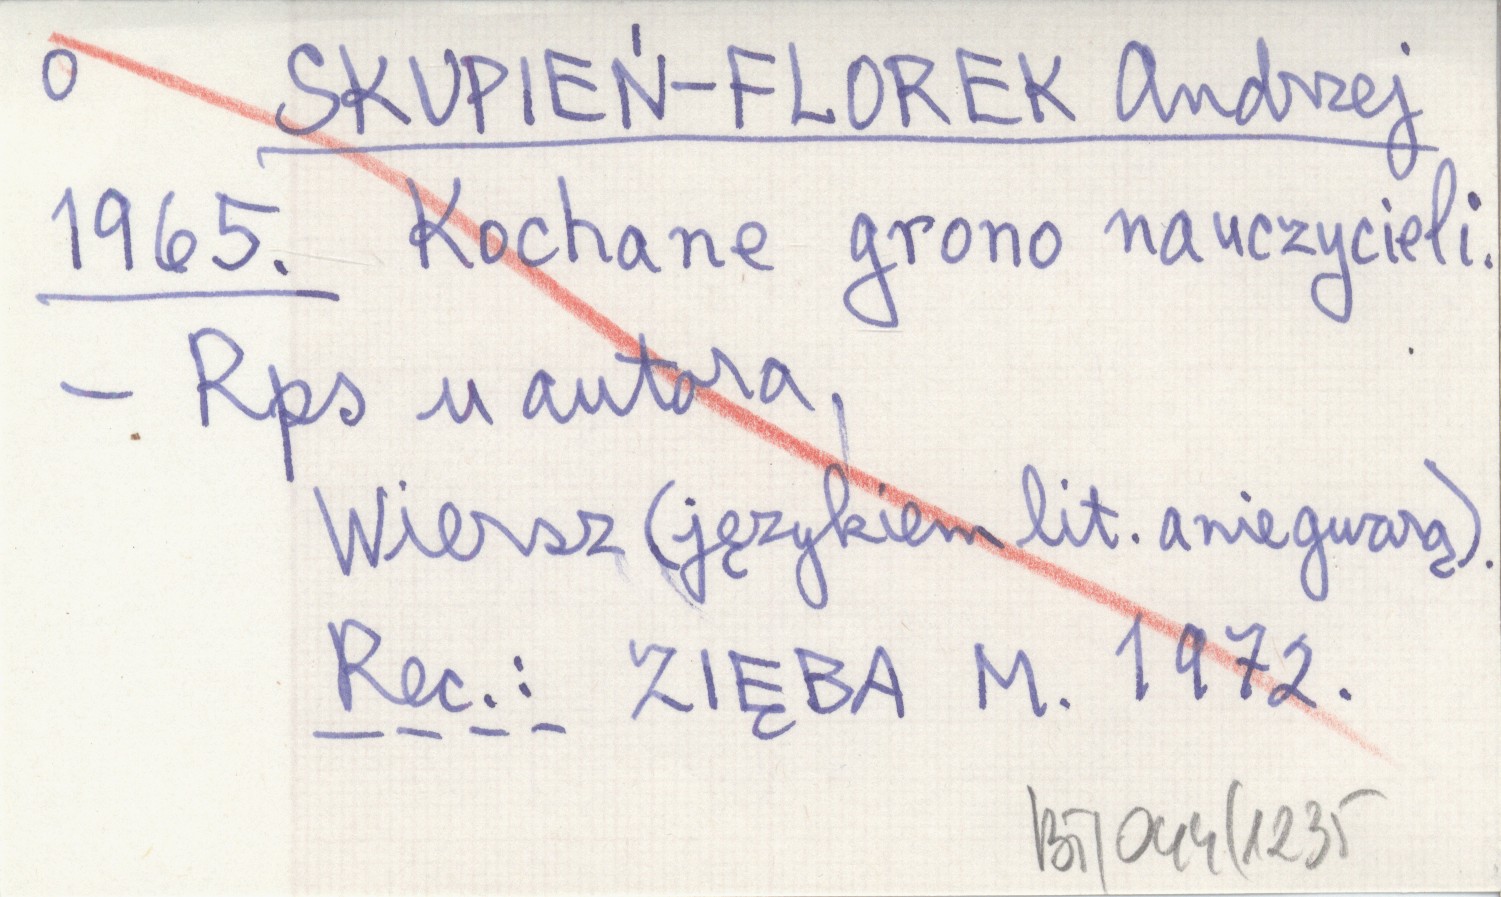 O SKUPIEŃ-FLOREK Andrzej
1965. Kochane grono nauczycieli.
– Rps u autora,
Wiersz (językiem lit. a nie gwarą).
Rec.: ZIĘBA M. 1972.